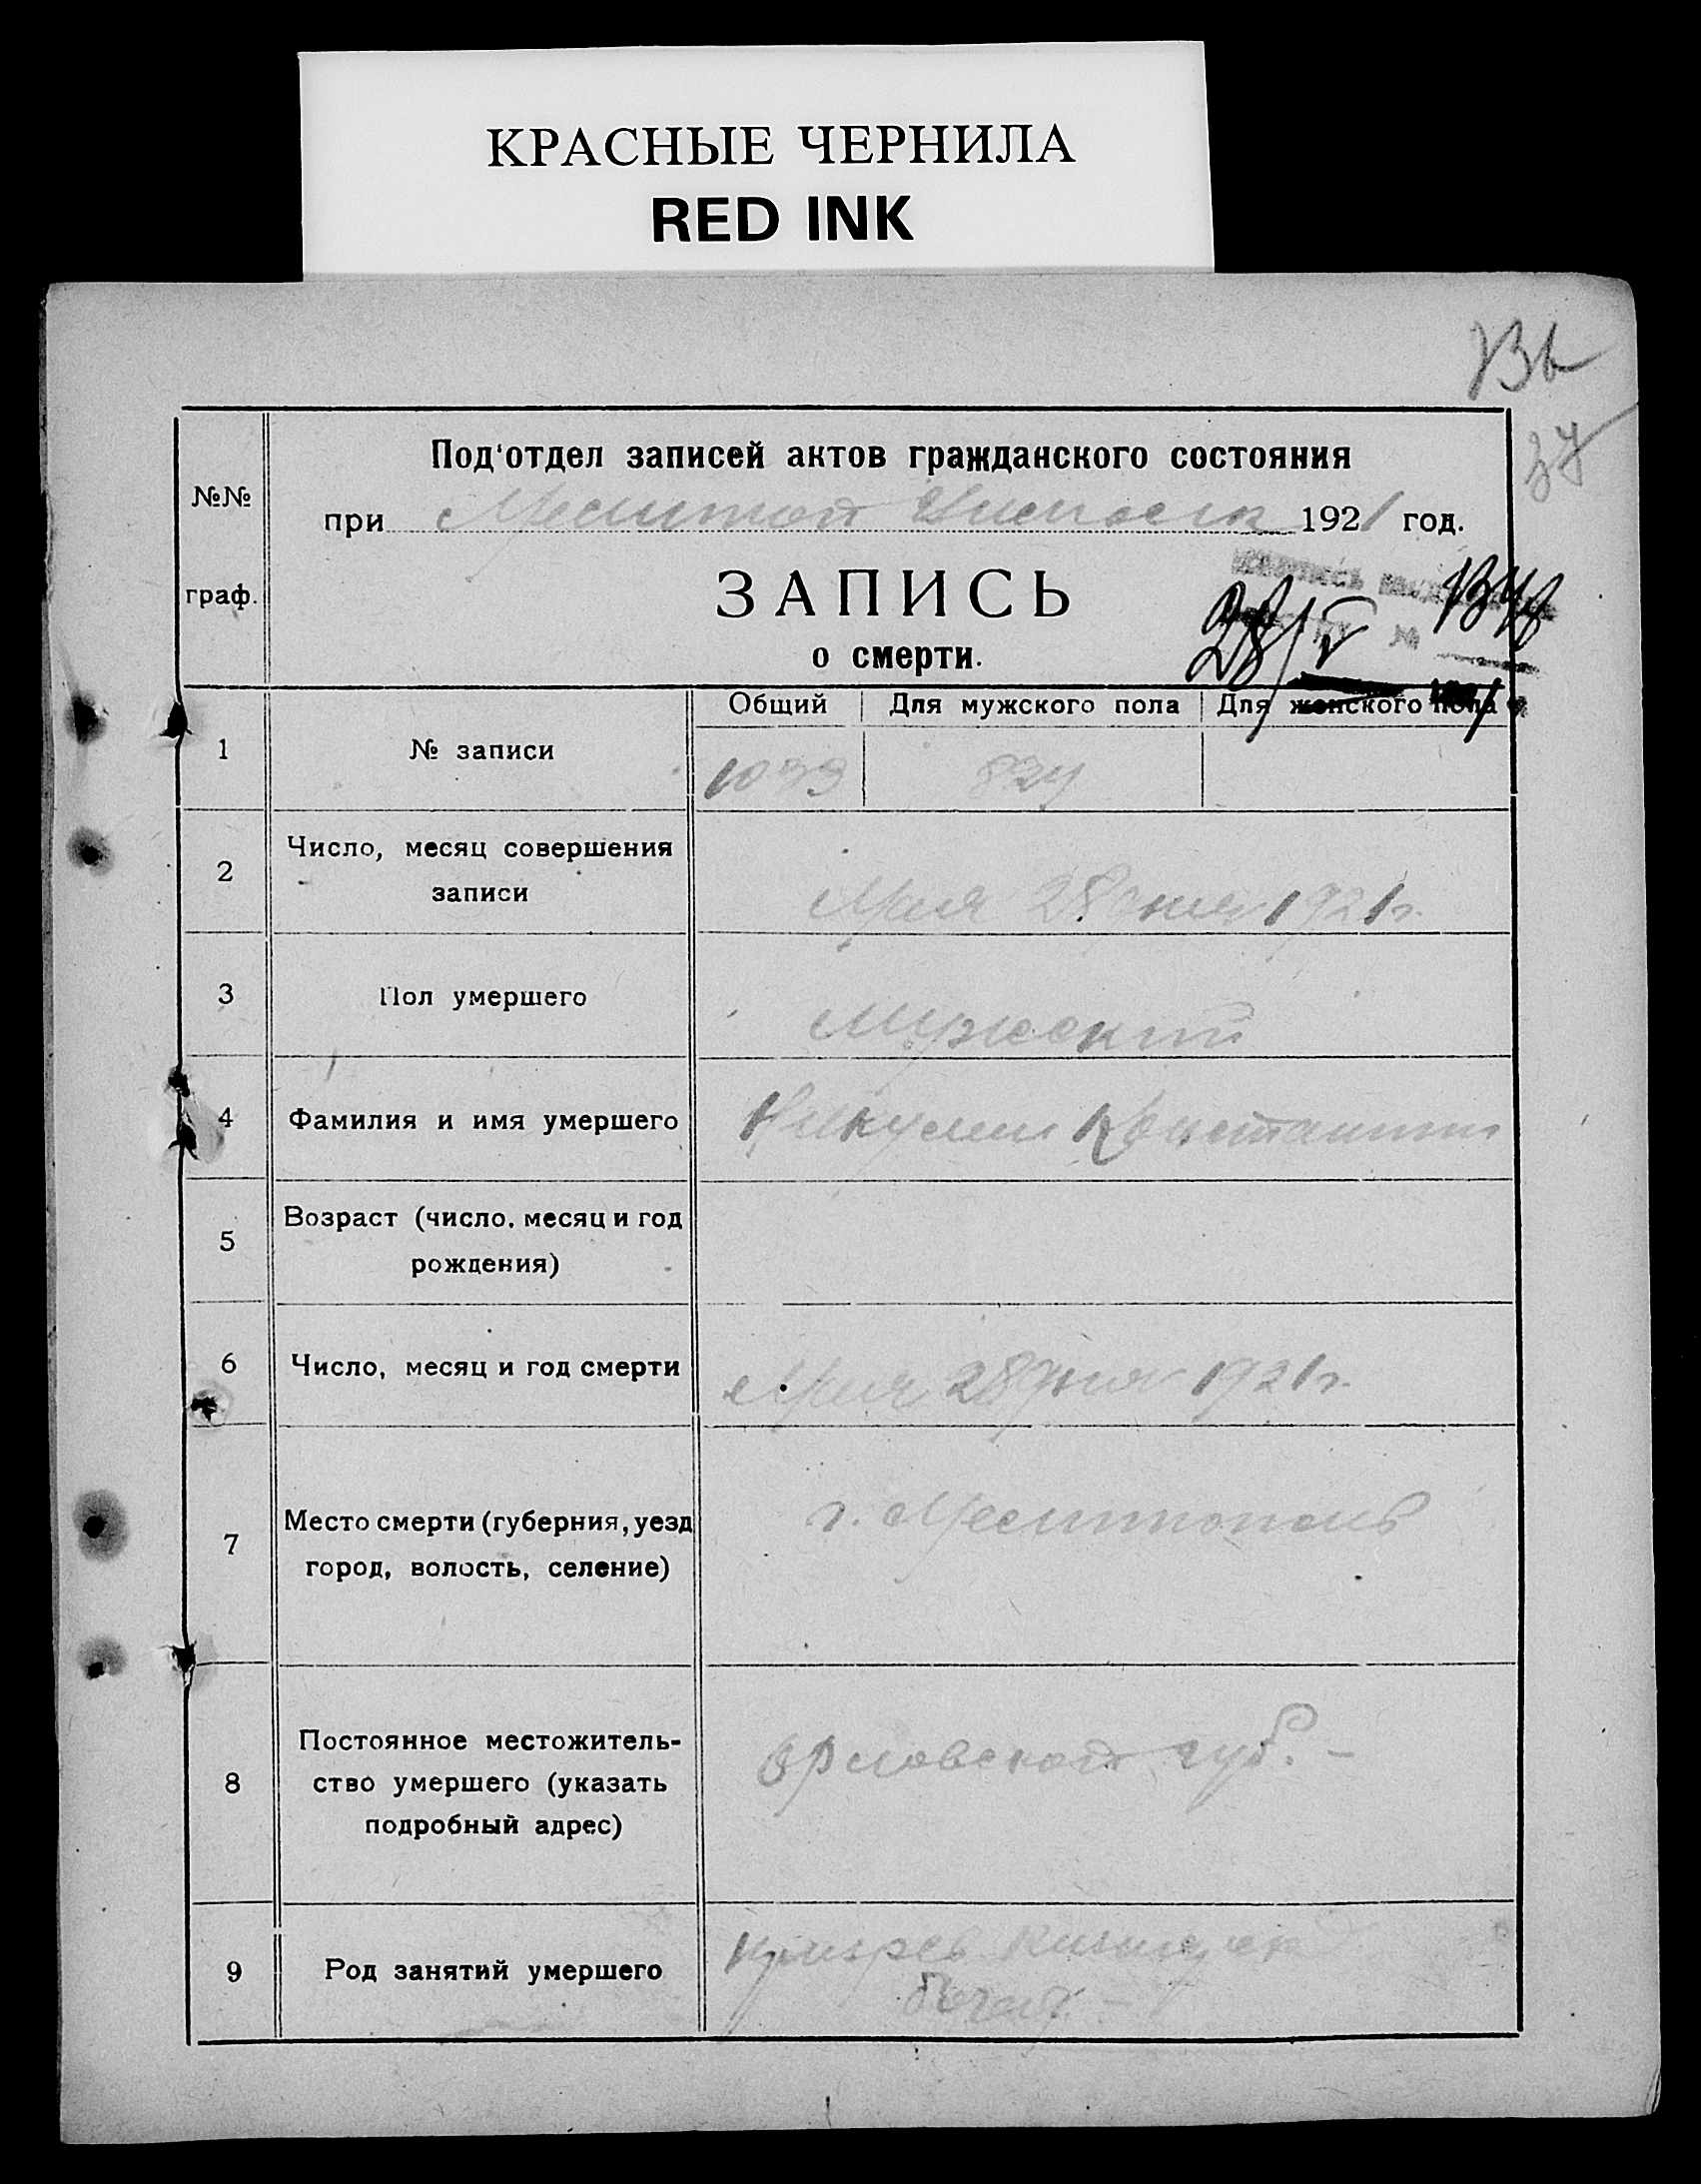 КРАСНЫЕ ЧЕРНИЛА
RED INK
Под'отдел записей актов гражданского состояния
№№
при 1921 год.
граф.
ЗАПИСЬ
о смерти.
28/V
Общий Для мужского пола Для женского пола
1 № записи
Число, месяц совершения
2
записи
Мая 28 дня 1921 г.
3 Пол умершего
Мужской
4 Фамилия и имя умершего Никулин Константин
Возраст (число, месяц и год
5
рождения)
6 Число, месяц и год смерти Мая 28 дня 1921 г.
г. Мелитополь
Место смерти (губерния, уезд
7
город, волость, селение)
Постоянное местожитель-
Орловской губ. -
8 ство умершего (указать
подробный адрес)
9 Род занятий умершего